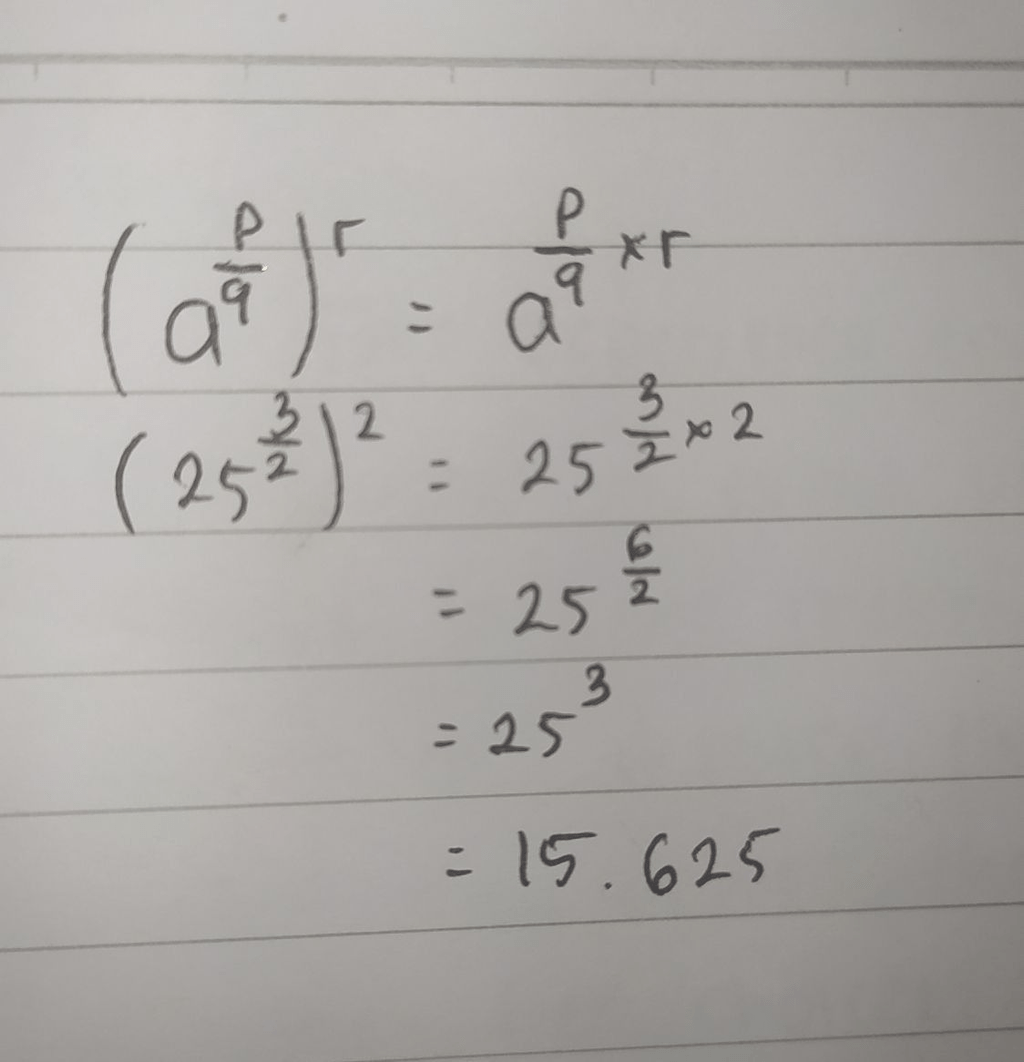 (a^(p/q))^r = a^(p/q × r)
(25^(3/2))^2 = 25^(3/2 × 2)
= 25^(6/2)
= 25^3
= 15.625